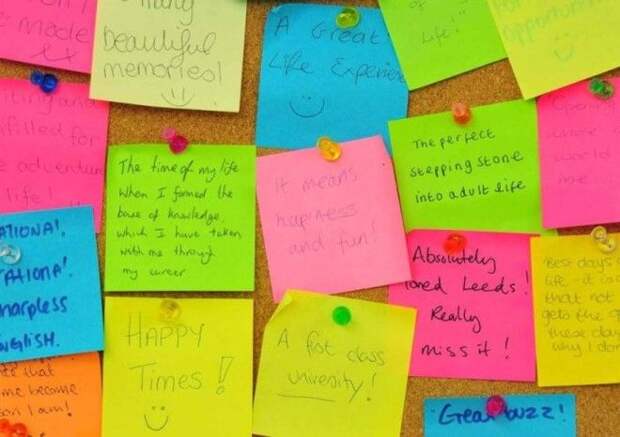 many
made
beautiful
memories!
A Great
Life Experience
Life!
for
opportunities
and
for
adventure
life!
The time of my life
When I formed the
base of knowledge
which I have taken
with me through
my career
It means
happiness
and fun!
The perfect
stepping stone
into adult life
world
me
ATIONAL,
ATIONAL
harpless
ENGLISH.
Absolutely
oned Leeds!
Really
miss it!
Best days
life - it is
that not
gets the
these day
why I don
HAPPY
Times!
A first class
university!
that
me become
son I am!
Great buzz!